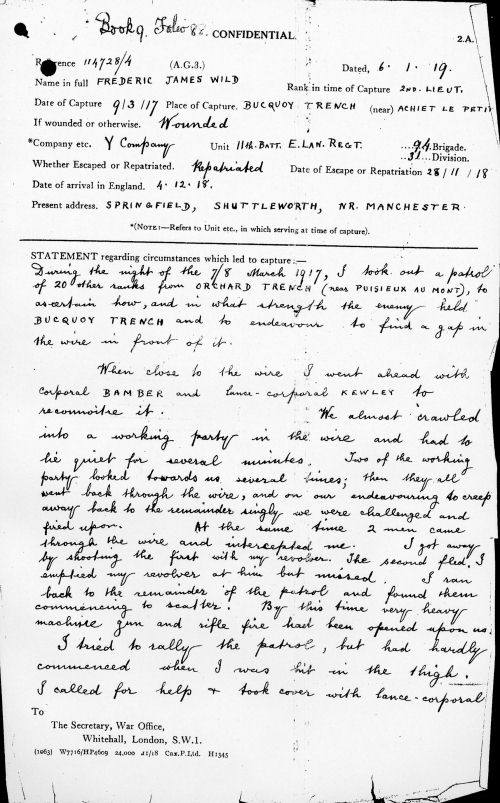 Book 9. Folio 82. CONFIDENTIAL.
2.A.
Reference 114728/4 (A.G.3.) Dated, 6. 1. 19.
Name in full FREDERIC JAMES WILD
Rank in time of Capture 2ND. LIEUT.
Date of Capture 9/3/17 Place of Capture. BUCQUOY TRENCH (near) ACHIET LE PETIT
If wounded or otherwise. Wounded
*Company etc. Y Company Unit 11th. BATT. E. LAN. REGT. ...94.Brigade.
...31...Division.
Whether Escaped or Repatriated. Repatriated Date of Escape or Repatriation 28/11/18
Date of arrival in England. 4. 12. 18.
Present address. SPRINGFIELD, SHUTTLEWORTH, NR. MANCHESTER.
*(NOTE:—Refers to Unit etc., in which serving at time of capture).
STATEMENT regarding circumstances which led to capture:—
During the night of the 7/8 March 1917, I took out a patrol
of 20 other ranks from ORCHARD TRENCH (near PUISIEUX AU MONT), to
ascertain how, and in what strength the enemy held
BUCQUOY TRENCH and to endeavour to find a gap in
the wire in front of it.
When close to the wire I went ahead with
Corporal BAMBER and lance-corporal KEWLEY to
reconnoitre it. We almost crawled
into a working party in the wire and had to
lie quiet for several minutes. Two of the working
party looked towards us several times; then they all
went back through the wire, and on our endeavouring to creep
away back to the remainder singly we were challenged and
fired upon. At the same time 2 men came
through the wire and intercepted me. I got away
by shooting the first with my revolver. The second fled. I
emptied my revolver at him but missed. I ran
back to the remainder of the patrol and found them
commencing to scatter. By this time very heavy
machine gun and rifle fire had been opened upon us.
I tried to rally the patrol, but had hardly
commenced when I was hit in the thigh.
I called for help + took cover with lance-corporal
To
The Secretary, War Office,
Whitehall, London, S.W.1.
(1063) W7716/HP4609 24,000 11/18 Cas.P.Ltd. H1345